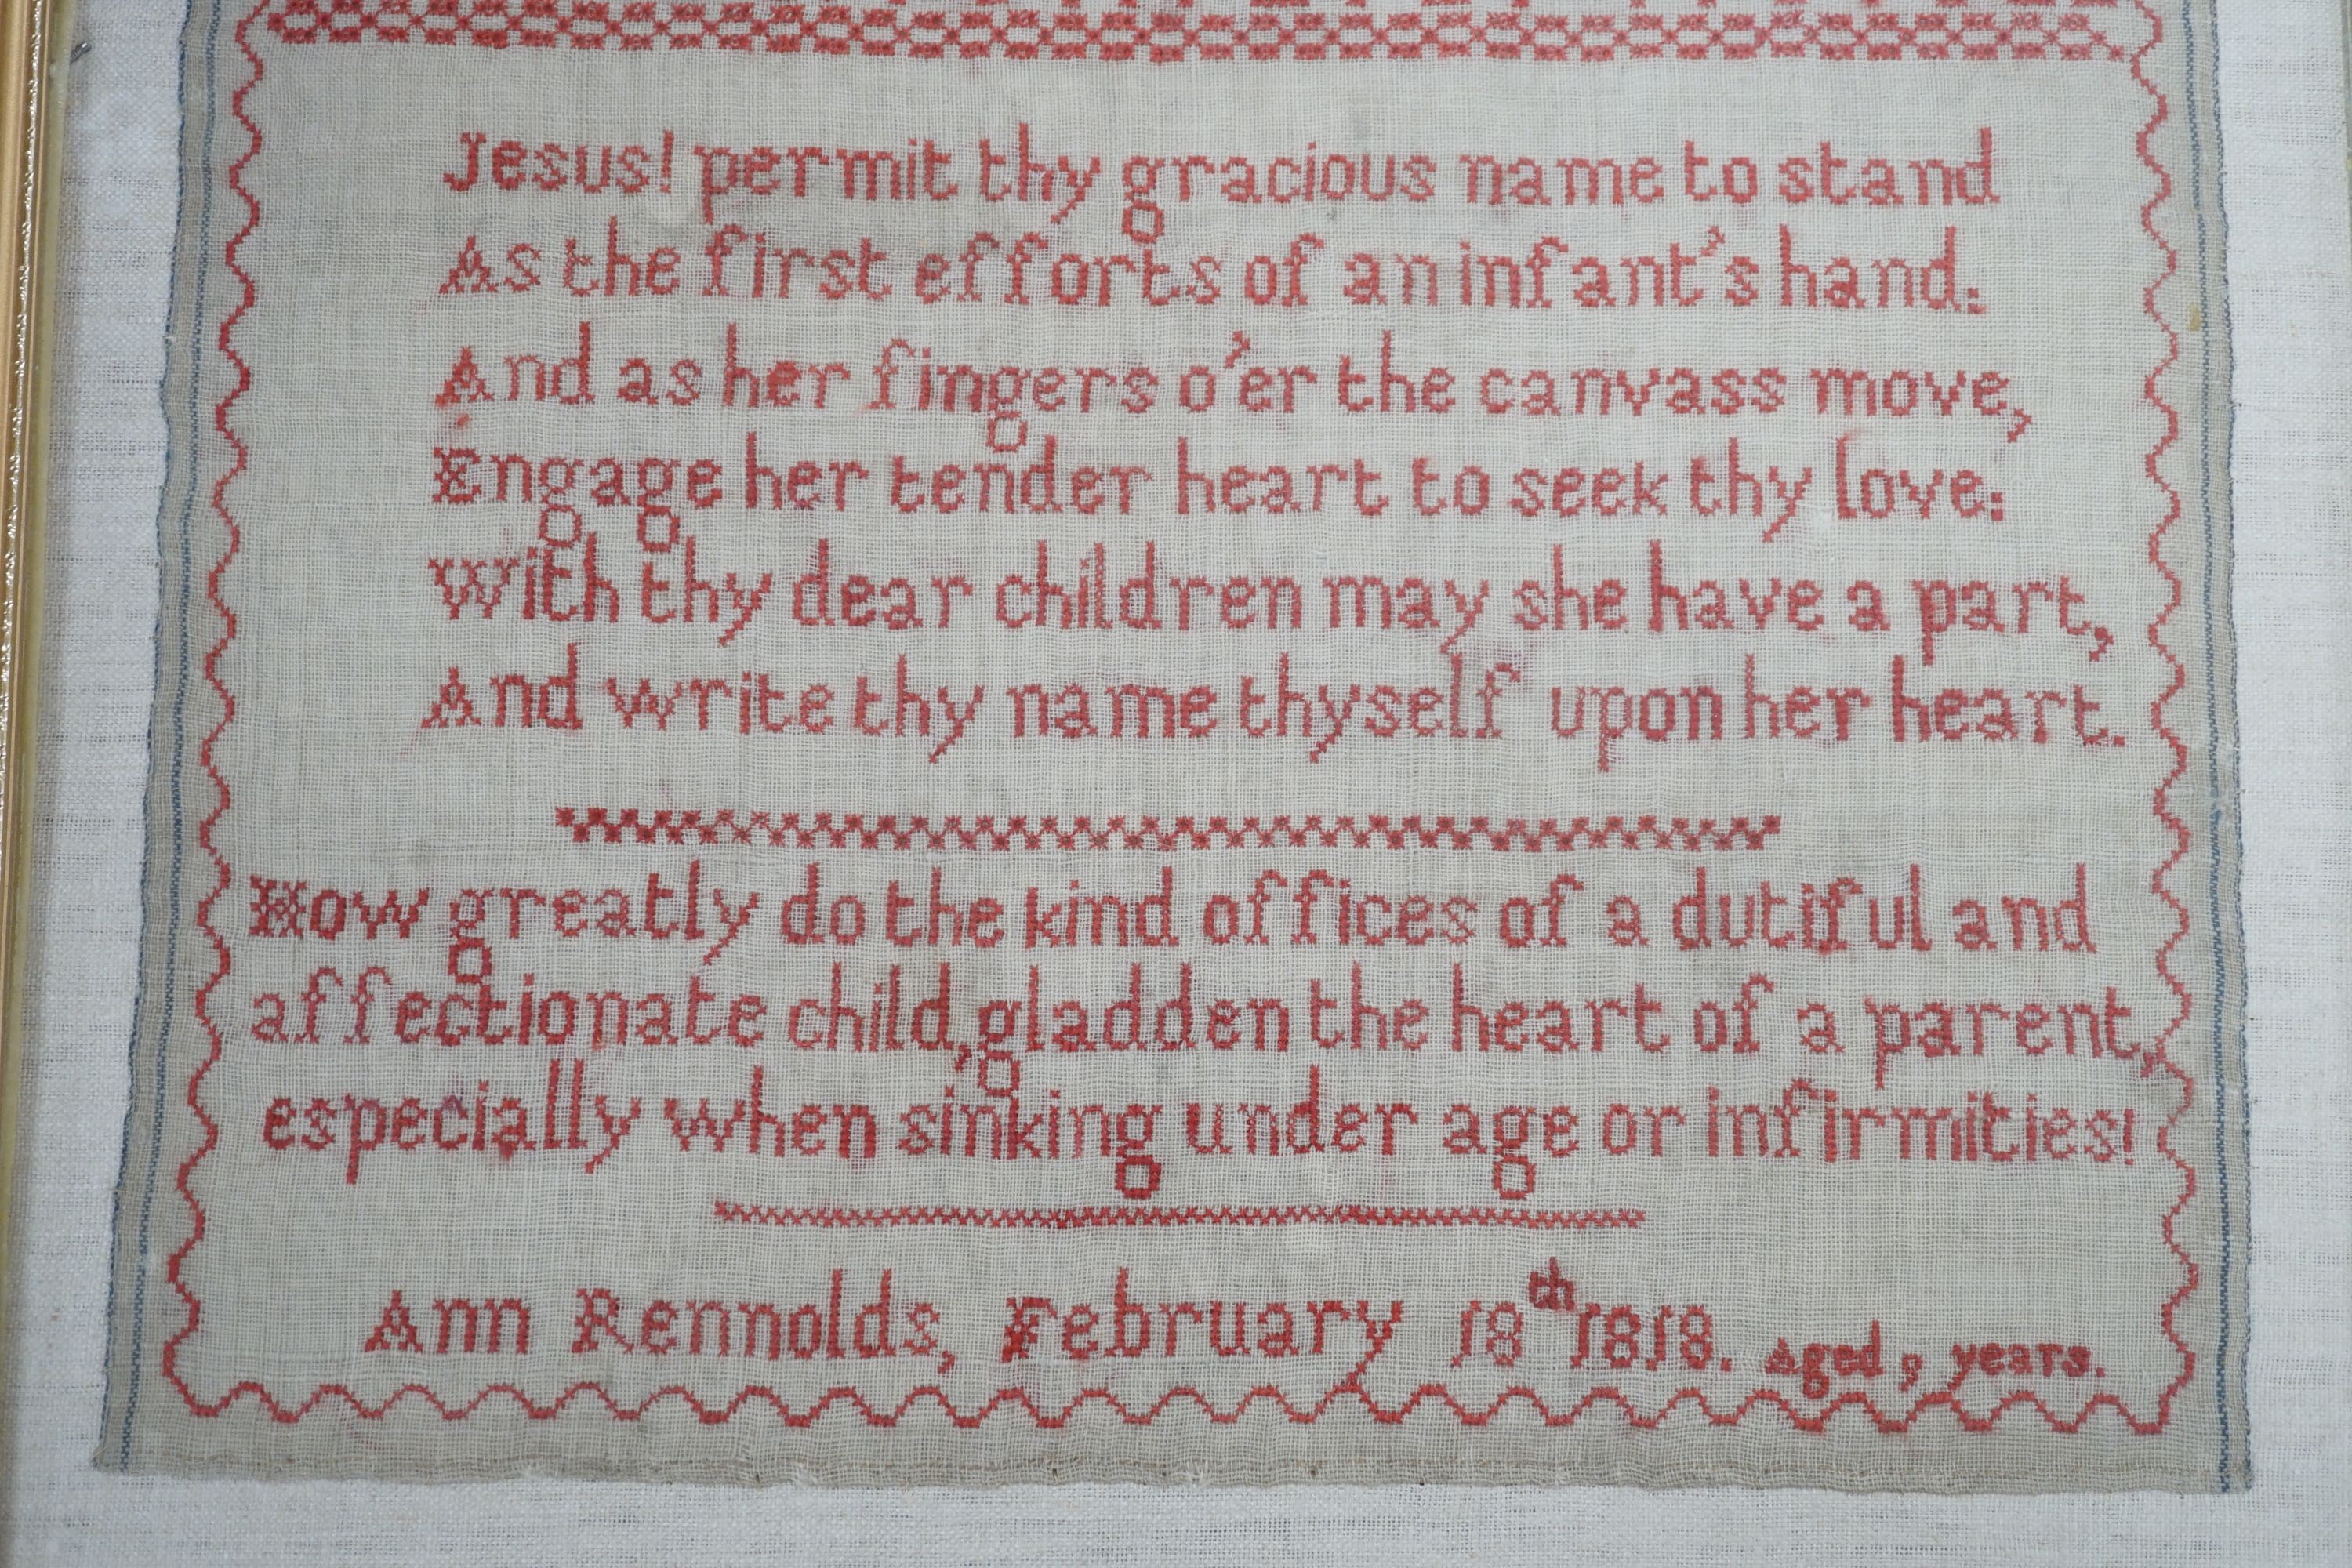 Jesus! permit thy gracious name to stand
As the first efforts of an infant's hand:
And as her fingers o'er the canvass move,
Engage her tender heart to seek thy love:
With thy dear children may she have a part,
And write thy name thyself upon her heart.
How greatly do the kind offices of a dutiful and
affectionate child, gladden the heart of a parent,
especially when sinking under age or infirmities!
Ann Rennolds, February 18th 1818. Aged 9 years.